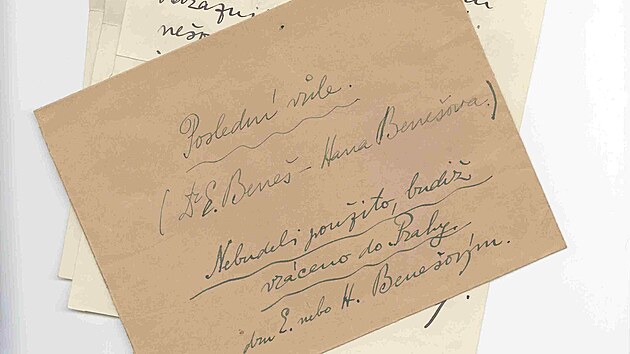 nešm
Poslední vůle.
(Dr E. Beneš – Hana Benešova.)
Nebudeli použito, budiž
vráceno do Prahy.
E. nebo H. Benešovým.